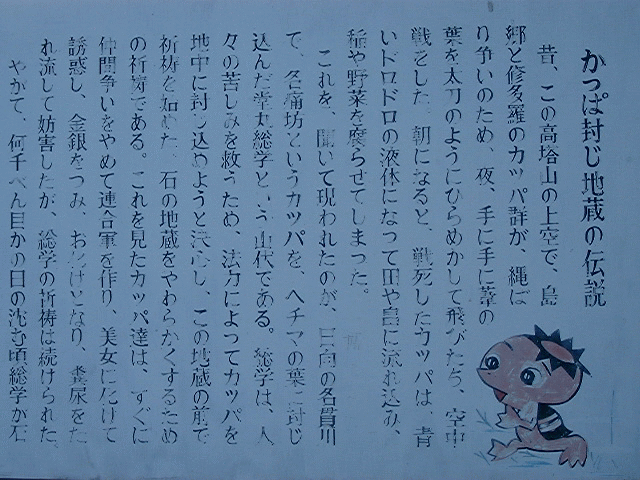 かっぱ封じ地蔵の伝説
昔、この高塔山の上空で、島
郷と修多羅のカッパ群が、縄ば
り争いのため、夜、手に手に葦の
葉を太刀のようにひらめかして飛びたち、空中
戦をした。朝になると、戦死したカッパは、青
いドロドロの液体になって田や畠に流れ込み、
稲や野菜を腐らせてしまった。
これを、聞いて現われたのが、日向の名貫川
て、名痛坊というカッパを、ヘチマの葉に封じ
込んだ堂丸総学という山伏である。総学は、人
々の苦しみを救うため、法力によってカッパを
地中に封じ込めようと決心し、この地蔵の前で
祈祷を始めた。石の地蔵をやわらかくするため
の祈祷である。これを見たカッパ達は、すぐに
仲間争いをやめて連合軍を作り、美女に化けて
誘惑し、金銀をつみ、おばけとなり、糞尿をた
れ流して妨害したが、総学の祈祷は続けられた。
やがて、何千べん目かの日の沈む頃総学が石